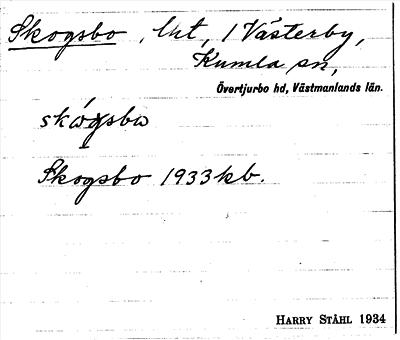 Skogsbo, lht, i Västerby,
Kumla sn,
Övertjurbo hd, Västmanlands län.
skógsbω
Skogsbo 1933 kb.
HARRY STÅHL 1934